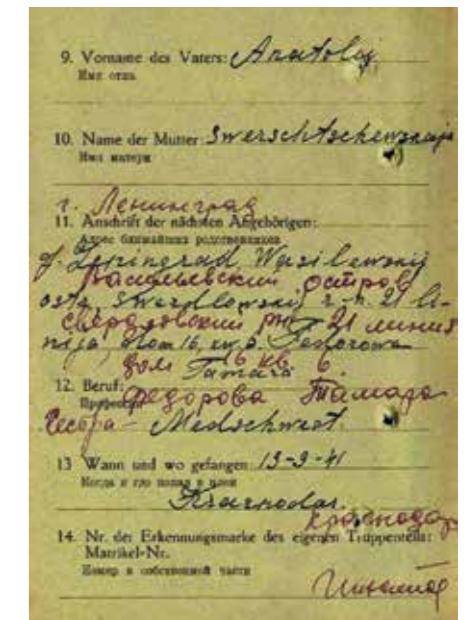 9. Vorname des Vaters: Anatolij
Имя отца
10. Name der Mutter: Swerschtschewskaja
Имя матери
г. Ленинград
11. Anschrift der nächsten Angehörigen:
Адрес ближайших родственников
g. Leningrad Wasilewskij
Васильевский остров
ostr, Swerdlowskij r-n. 21 li-
свердловский рн 21 линия
nija, dom 16, kw. 6. Fedorowa
дом 16 кв 6.
Tamara
12. Beruf:
Профессия
Федорова Тамара
Medschwest.
13 Wann und wo gefangen: 13-9-41
Когда и где попал в плен
Krasnodar.
Краснодар
14. Nr. der Erkennungsmarke des eigenen Truppenteils:
Matrikel-Nr.
Номер в собственной части